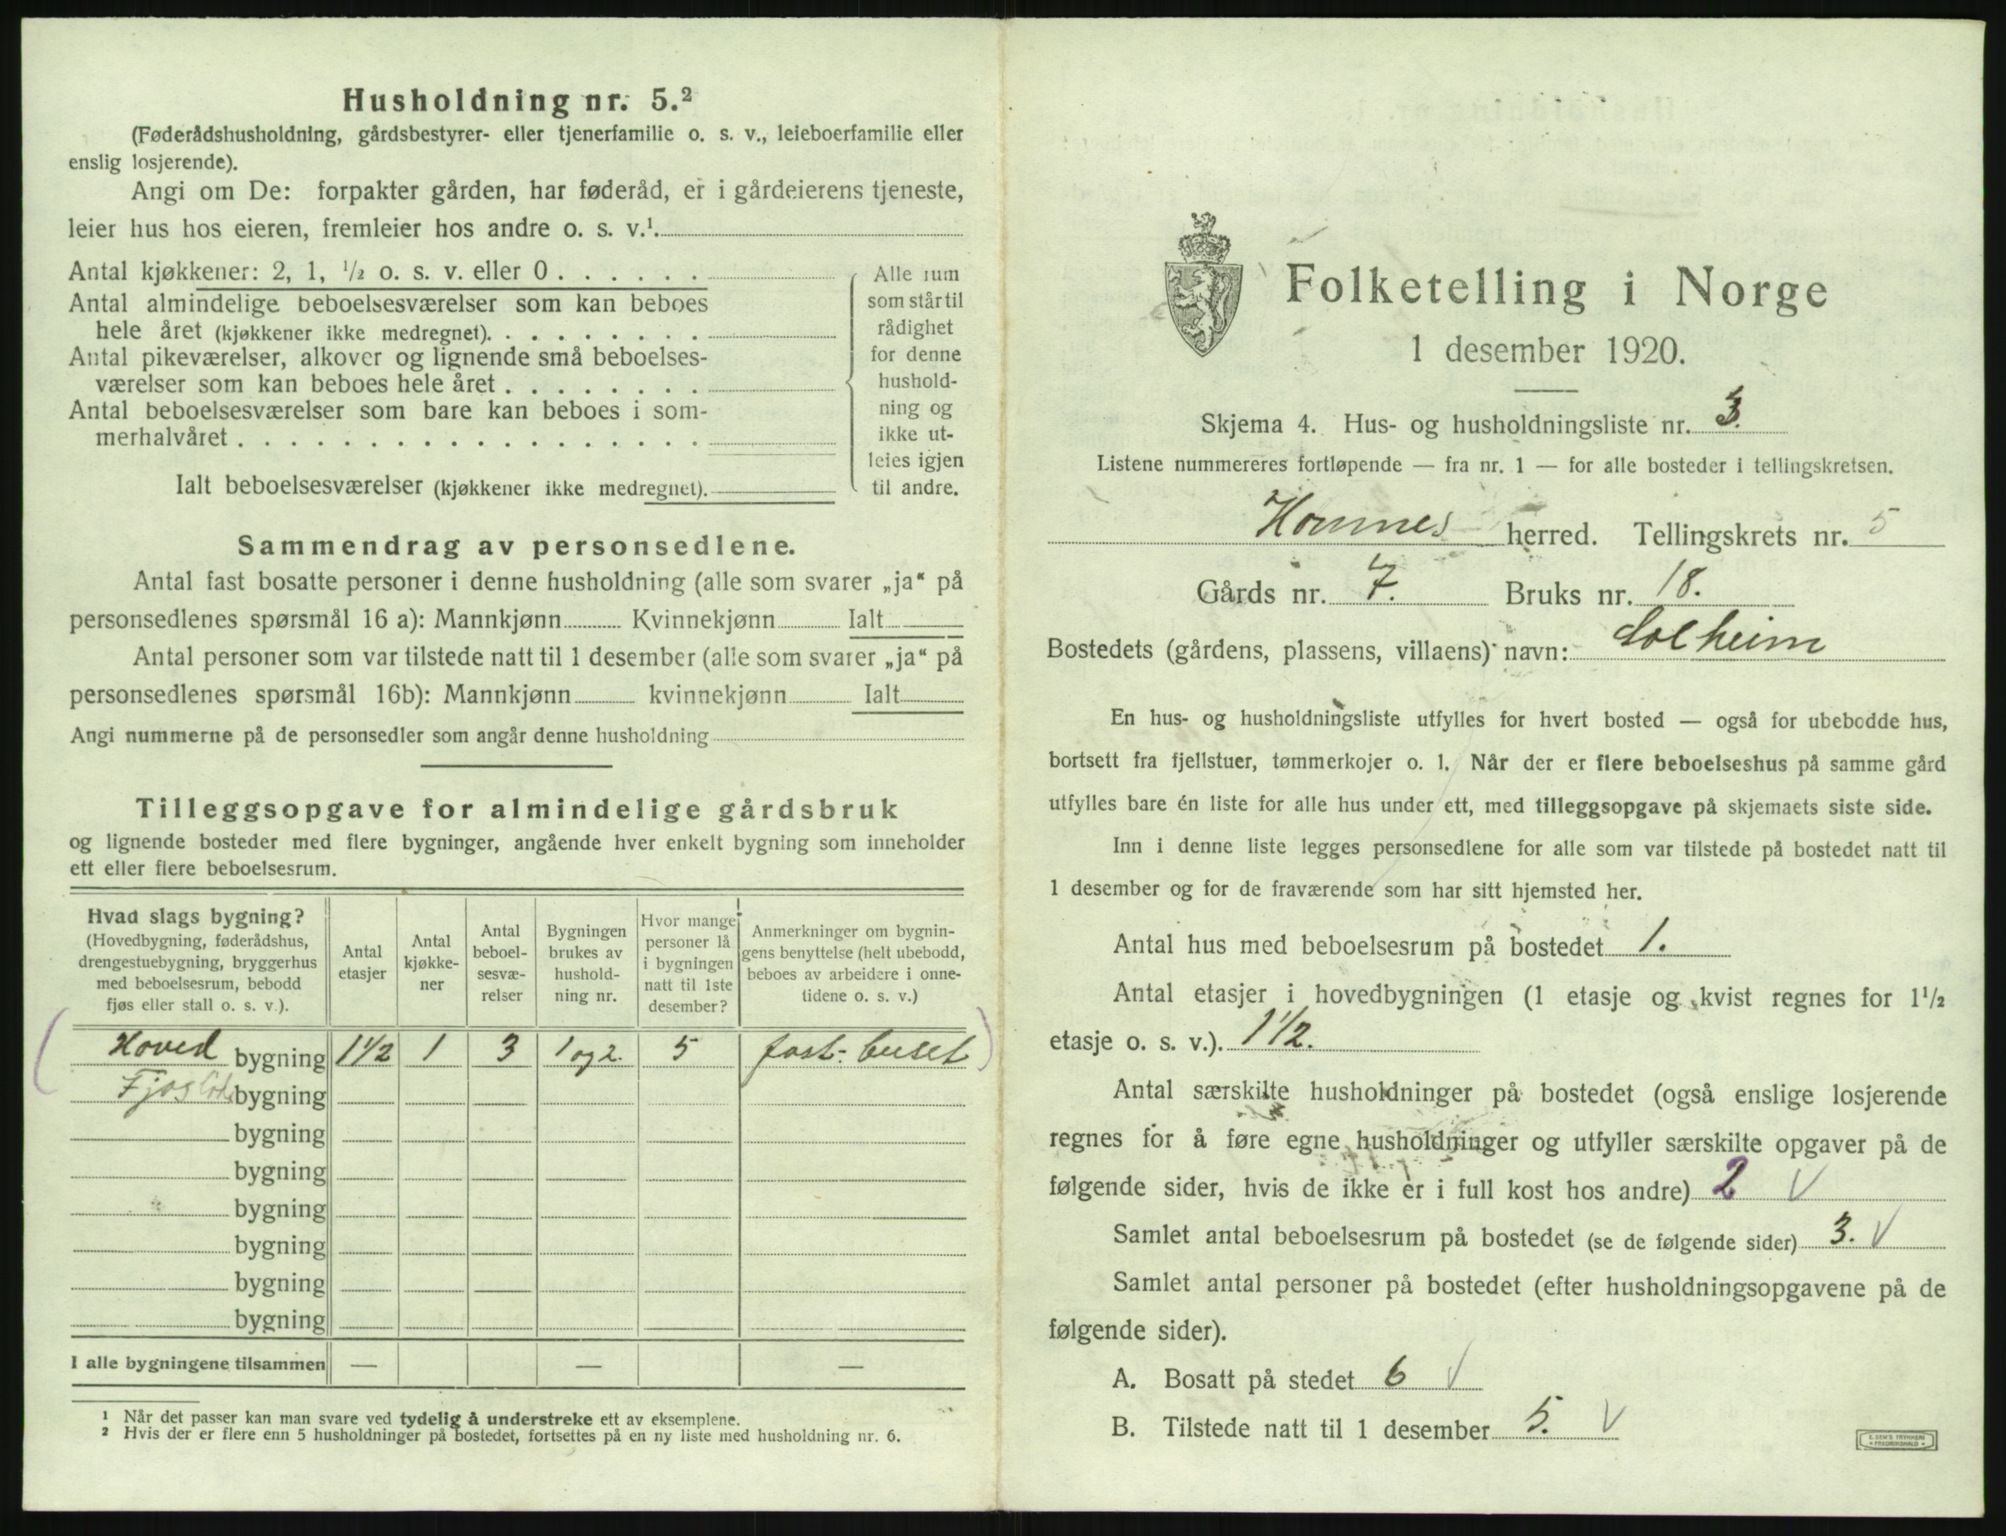 Husholdning nr. 5.²
(Føderådshusholdning, gårdsbestyrer- eller tjenerfamilie o. s. v., leieboerfamilie eller
enslig losjerende).
Angi om De: forpakter gården, har føderåd, er i gårdeierens tjeneste,
leier hus hos eieren, fremleier hos andre o. s. v.¹
Antal kjøkkener: 2, 1, ½ o. s. v. eller 0 . . . . . .
Antal almindelige beboelsesværelser som kan beboes
hele året (kjøkkener ikke medregnet). . . . . . . . .
Antal pikeværelser, alkover og lignende små beboelses-
værelser som kan beboes hele året . . . . . . . .
Antal beboelsesværelser som bare kan beboes i som-
merhalvåret . . . . . . . . . . . . . . . . . .
Ialt beboelsesværelser (kjøkkener ikke medregnet).
Alle rum
som står til
rådighet
for denne
hushold-
ning og
ikke ut-
leies igjen
til andre.
Sammendrag av personsedlene.
Antal fast bosatte personer i denne husholdning (alle som svarer „ja“ på
personsedlenes spørsmål 16 a): Mannkjønn Kvinnekjønn Ialt
Antal personer som var tilstede natt til 1 desember (alle som svarer „ja“ på
personsedlenes spørsmål 16b): Mannkjønn kvinnekjønn Ialt
Angi nummerne på de personsedler som angår denne husholdning
Tilleggsopgave for almindelige gårdsbruk
og lignende bosteder med flere bygninger, angående hver enkelt bygning som inneholder
ett eller flere beboelsesrum.
Hvad slags bygning?
(Hovedbygning, føderådshus,
drengestuebygning, bryggerhus
med beboelsesrum, bebodd
fjøs eller stall o. s. v.).
Antal
etasjer
Antal
kjøkke-
ner
Antal
beboel-
sesvæ-
relser
Bygningen
brukes av
hushold-
ning nr.
Hvor mange
personer lå
i bygningen
natt til 1ste
desember?
Anmerkninger om bygnin-
gens benyttelse (helt ubebodd,
beboes av arbeidere i onne-
tidene o. s. v.)
Hoved bygning 1½ 1 3 1 og 2. 5 fast buset
bygning
bygning
bygning
bygning
bygning
bygning
bygning
I alle bygningene tilsammen — — —
¹ Når det passer kan man svare ved tydelig å understreke ett av eksemplene.
² Hvis der er flere enn 5 husholdninger på bostedet, fortsettes på en ny liste med husholdning nr. 6.
Folketelling i Norge
1 desember 1920.
Skjema 4. Hus- og husholdningsliste nr. 3.
Listene nummereres fortløpende — fra nr. 1 — for alle bosteder i tellingskretsen.
herred. Tellingskrets nr. 5
Gårds nr. 7. Bruks nr. 18.
Bostedets (gårdens, plassens, villaens) navn: Solheim
En hus- og husholdningsliste utfylles for hvert bosted — også for ubebodde hus,
bortsett fra fjellstuer, tømmerkojer o. l. Når der er flere beboelseshus på samme gård
utfylles bare én liste for alle hus under ett, med tilleggsopgave på skjemaets siste side.
Inn i denne liste legges personsedlene for alle som var tilstede på bostedet natt til
1 desember og for de fraværende som har sitt hjemsted her.
Antal hus med beboelsesrum på bostedet 1.
Antal etasjer i hovedbygningen (1 etasje og kvist regnes for 1½
etasje o. s. v.). 1½.
Antal særskilte husholdninger på bostedet (også enslige losjerende
regnes for å føre egne husholdninger og utfyller særskilte opgaver på de
følgende sider, hvis de ikke er i full kost hos andre) 2 √
Samlet antal beboelsesrum på bostedet (se de følgende sider) 3. √
Samlet antal personer på bostedet (efter husholdningsopgavene på de
følgende sider).
A. Bosatt på stedet 6 √
B. Tilstede natt til 1 desember 5. √
E. SEM'S TRYKKERI
FREDRIKSHALD